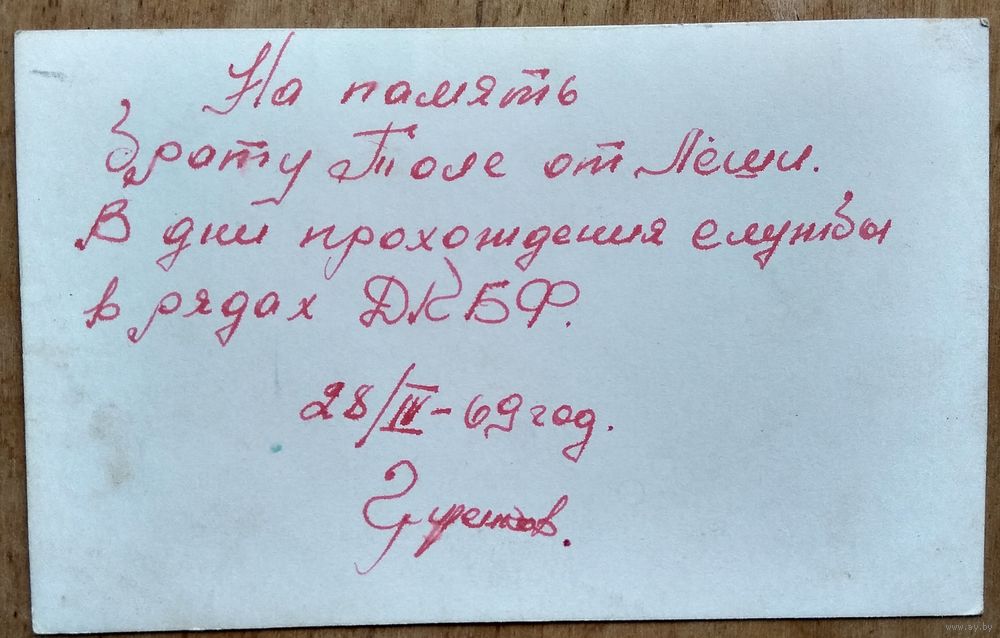 На память
брату Толе от Лёши.
В дни прохождения службы
в рядах ДКБФ.
28/IV-69 год.
www.ay.by